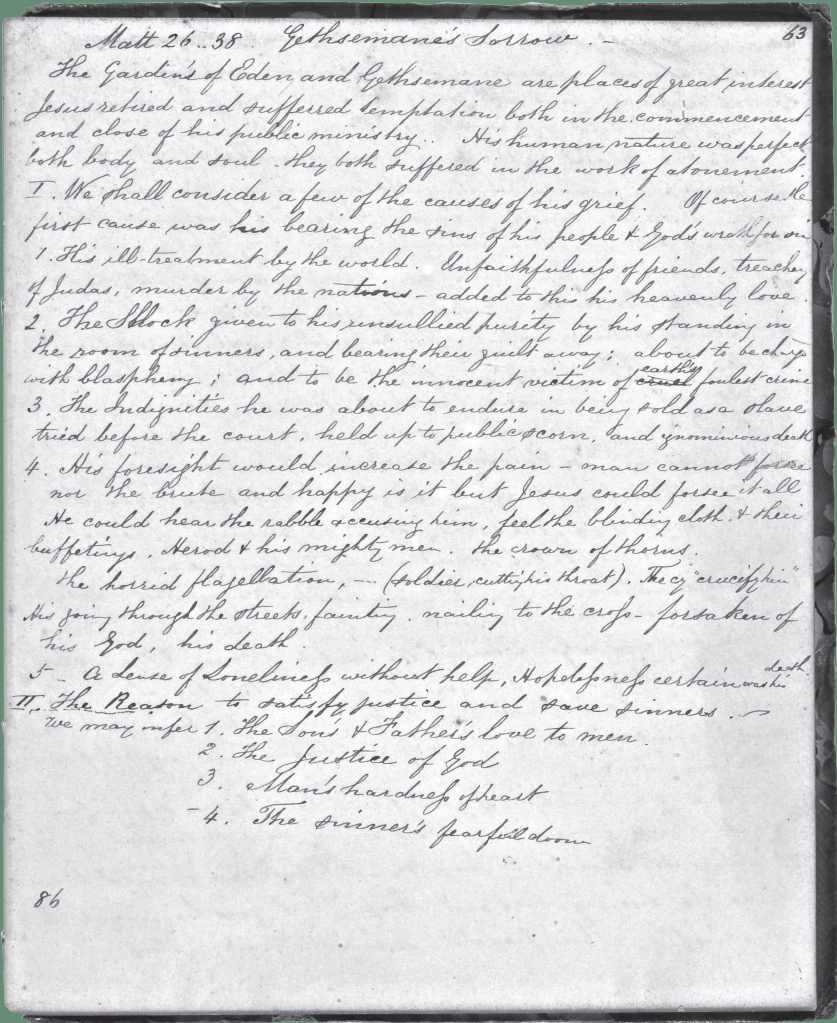 Matt 26..38. Gethsemane's Sorrow. – 63
The Gardin's of Eden and Gethsemane are places of great interest
Jesus retired and sufferred temptation both in the commencement
and close of his public ministry.. His human nature was perfect
both body and soul. they both suffered in the work of atonement.
I. We shall consider a few of the causes of his grief. Of course the
first cause was his bearing the sins of his people & God's wrath for sin
1. His ill-treatment by the world. Unfaithfulness of friends, treachery
of Judas, murder by the nations – added to this his heavenly love.
2. The Shock given to his unsullied purity by his standing in
the room of sinners, and bearing their guilt away; about to be charg
with blasphemy; and to be the innocent victim of cruel earth's foulest crime
3. The Indignities he was about to endure in being sold as a slave
tried before the court, held up to public scorn, and ignominious death
4. His foresight would increase the pain – man cannot forsee
nor the brute and happy is it but Jesus could forsee it all
He could hear the rabble accusing him, feel the blinding cloth, & their
buffetings. Herod & his mighty men. the crown of thorns.
the horrid flagellation, – (soldier, cutting his throat). The cry "crucify him"
His going through the streets, fainting. nailing to the cross – forsaken of
his God, his death.
5 – A Sense of Loneliness without help, Hopelessness certain death was his
II. The Reason to satisfy justice and save sinners. –
We may infer 1. The Son's & Father's love to men.
2. The Justice of God
3. Man's hardness of heart
– 4. The sinner's fearful doom
86